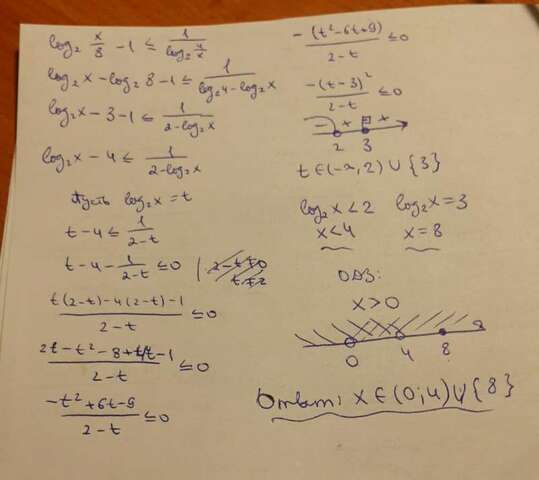 log₂ x/8 - 1 ≤ 1/(log₂ 4/x)
log₂x - log₂8 - 1 ≤ 1/(log₂4 - log₂x)
log₂x - 3 - 1 ≤ 1/(2 - log₂x)
log₂x - 4 ≤ 1/(2 - log₂x)
Пусть log₂x = t
t - 4 ≤ 1/(2 - t)
t - 4 - 1/(2 - t) ≤ 0
(t(2 - t) - 4(2 - t) - 1)/(2 - t) ≤ 0
(2t - t² - 8 + 4t - 1)/(2 - t) ≤ 0
(-t² + 6t - 9)/(2 - t) ≤ 0
-(t² - 6t + 9)/(2 - t) ≤ 0
-(t - 3)²/(2 - t) ≤ 0
- + +
2 3
t ∈ (-∞, 2) ∪ {3}
log₂x < 2 log₂x = 3
x < 4 x = 8
ОДЗ:
x > 0
0 4 8
Ответ: x ∈ (0; 4) ∪ {8}